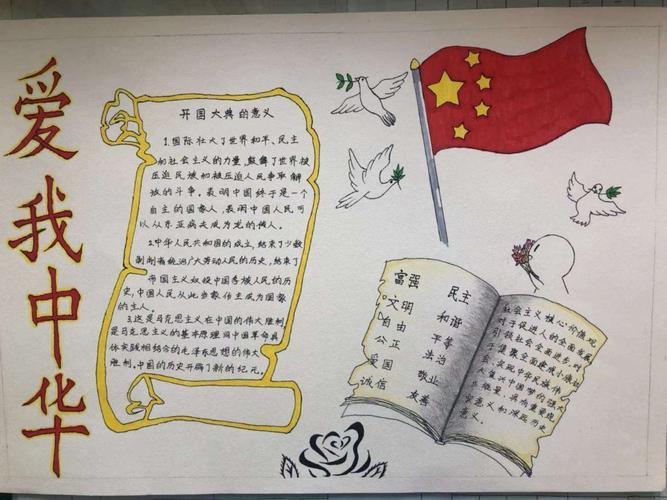 爱我中华
开国大典的意义
1.国际壮大了世界和平、民主
和社会主义的力量,鼓舞了世界被
压迫民族和被压迫人民争取解
放的斗争。表明中国终于是一个
自主的国家人,表明中国人民可
以从东亚病夫成为龙的传人。
2.中华人民共和国的成立,结束了少数
剥削者统治广大劳动人民的历史,结束了
帝国主义奴役中国各族人民的历
史,中国人民从此当家作主成为国家
的主人。
3.这是马克思主义在中国的伟大胜利,
是马克思主义的基本原理同中国革命具
体实践相结合的毛泽东思想的伟大
胜利。中国的历史开辟了新的纪元。
富强 民主
文明 和谐
自由 平等
公正 法治
爱国 敬业
诚信 友善
社会主义核心价值观
对于促进人的全面发展
引领社会全面进步,对
于集聚全面建成小康社
会、实现中华民族伟
大复兴中国梦的强大
正能量,具有重要现
实意义和深远历史
意义。